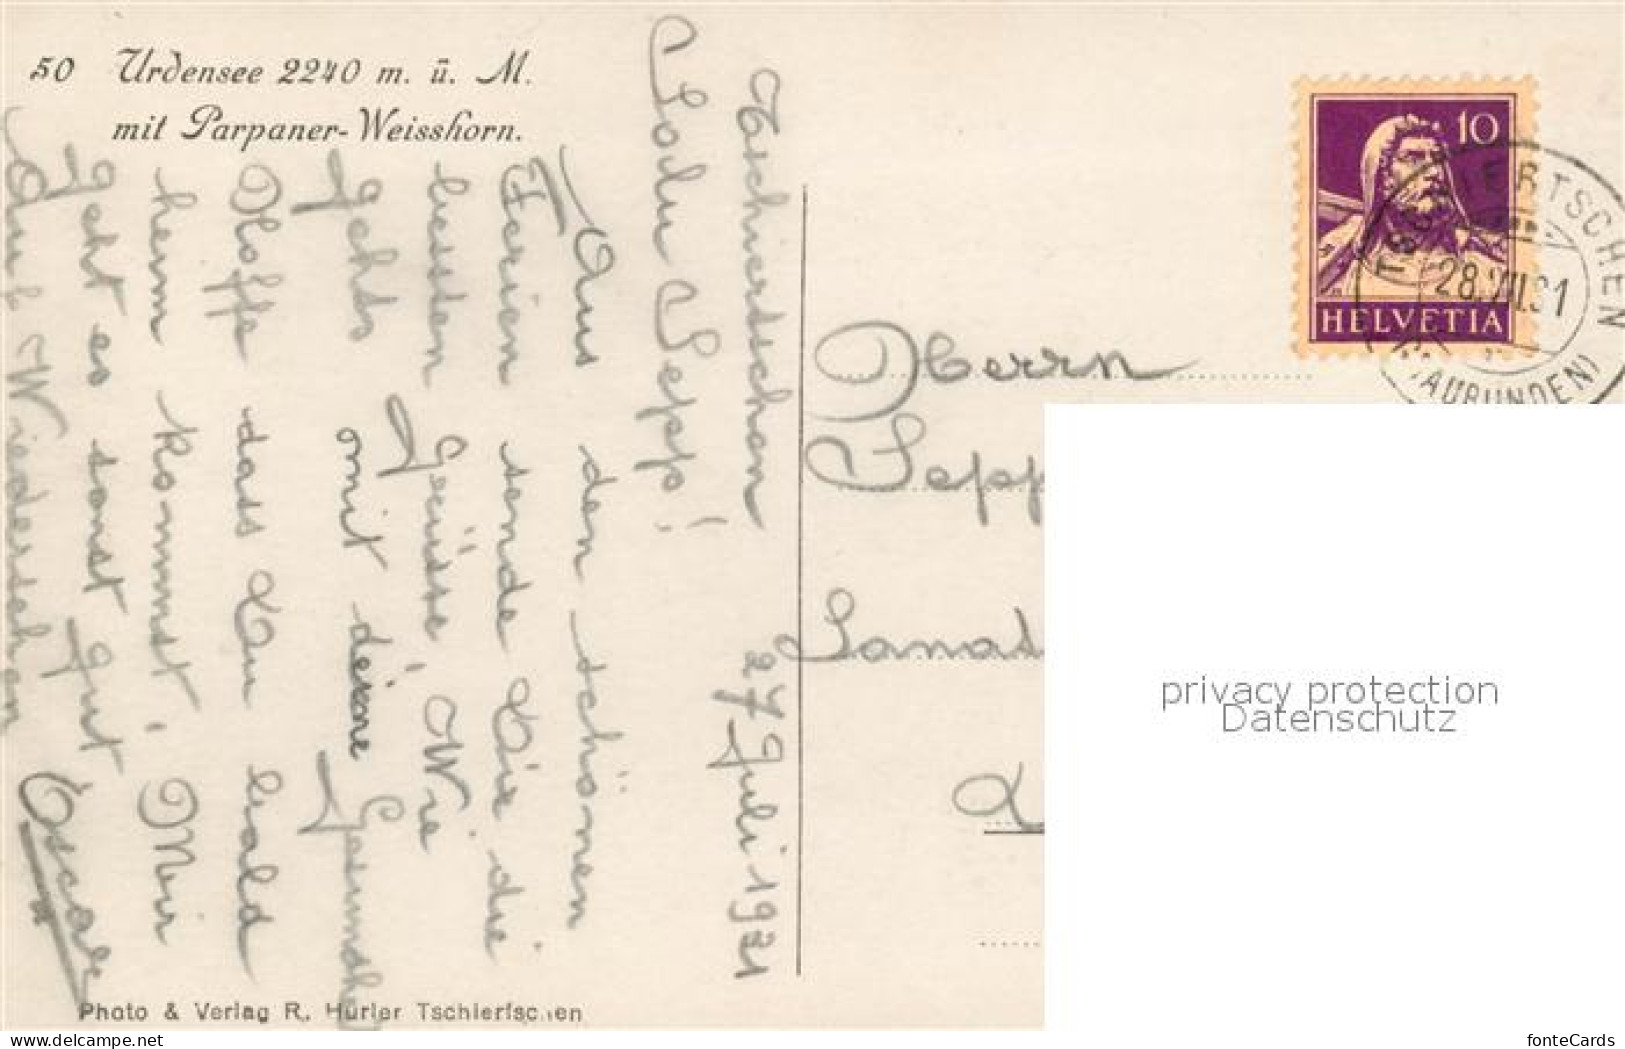 50 Urdensee 2240 m. ü. M.
mit Parpaner-Weisshorn.
Tschiertschen 27 Juli 1931
Salu Sepp!
Aus den schönen
Ferien sende Dir die
besten Grüsse, Wie
gehts mit deine Gesundhe
Hoffe dass Du bald
heim kommst, Mir
geht es sonst gut
Auf Wiedersehen Oscar
Photo & Verlag R. Hürler Tschiertschen
10
HELVETIA
TSCHIERTSCHEN
28.VII.31
(GRAUBÜNDEN)
Herrn
Sepp
Sanat
privacy protection
Datenschutz
www.delcampe.net
fonteCards